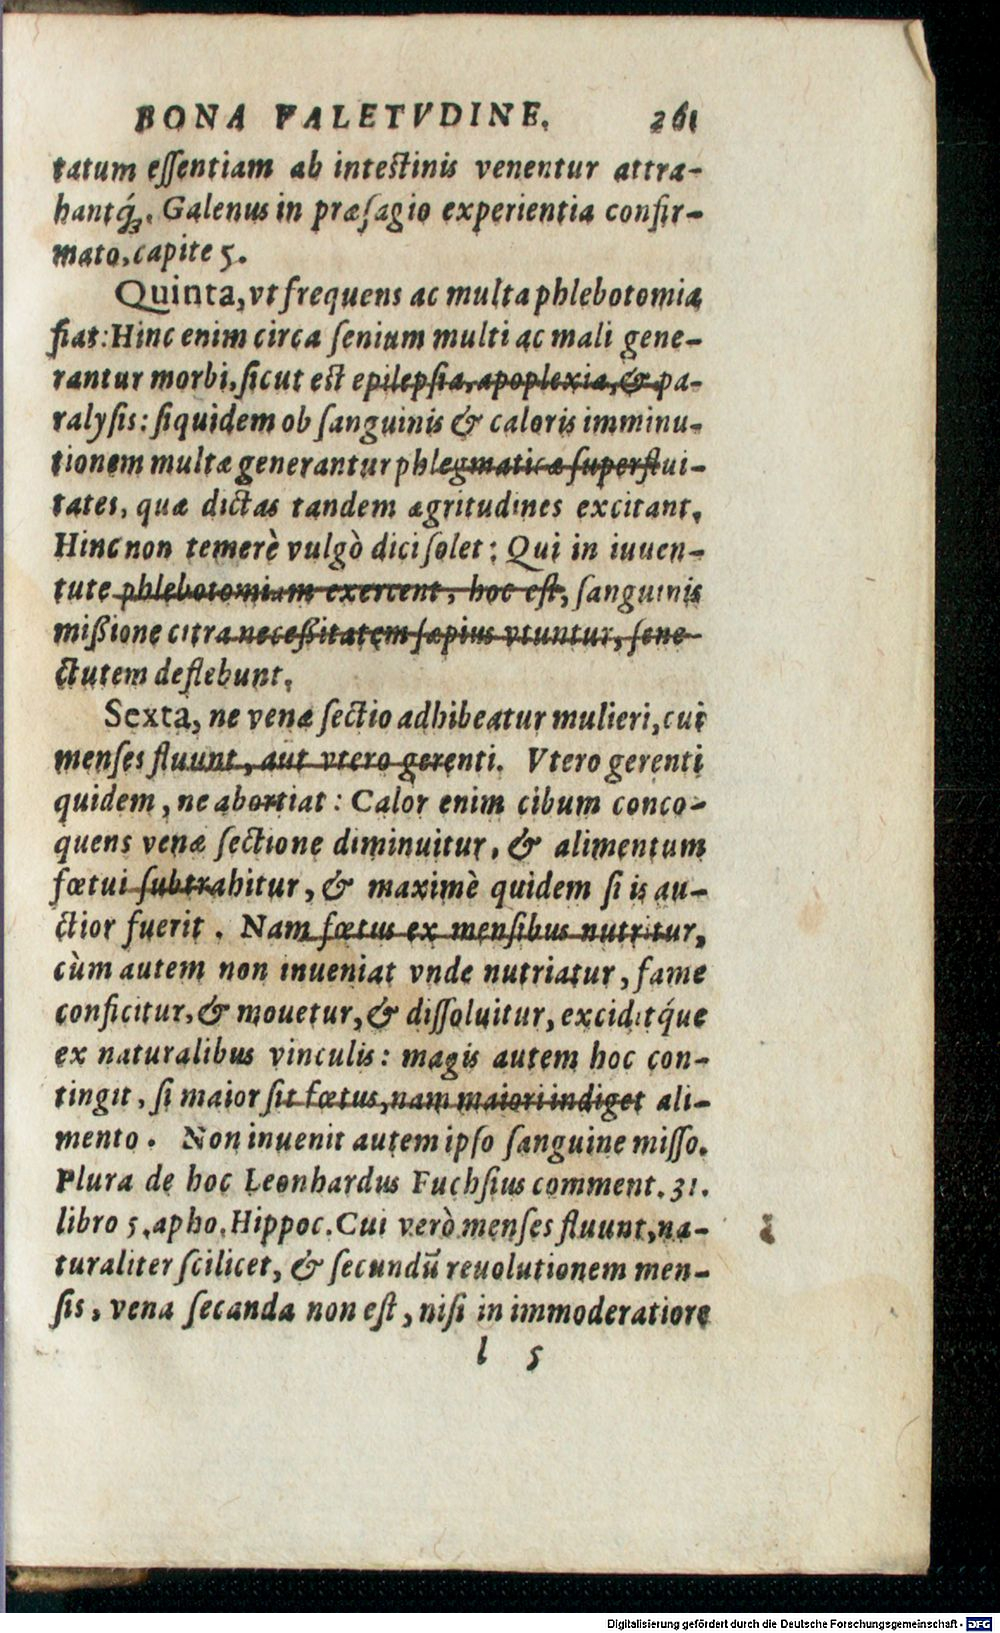 BONA VALETVDINE. 261
tatum eſſentiam ab inteſtinis venentur attra-
hantq́;. Galenus in præſagio experientia confir-
mato, capite 5.
Quinta, vt frequens ac multa phlebotomia
fiat: Hinc enim circa ſenium multi ac mali gene-
rantur morbi, ſicut eſt epilepſia, apoplexia, & pa-
ralyſis: ſiquidem ob ſanguinis & caloris imminu-
tionem multæ generantur phlegmaticæ ſuperflui-
tates, quæ dictas tandem ægritudines excitant.
Hinc non temerè vulgò dici ſolet: Qui in iuuen-
tute phlebotomiam exercent, hoc eſt, ſanguinis
mißione citra neceßitatem ſæpius vtuntur, ſene-
ctutem deflebunt.
Sexta, ne venæ ſectio adhibeatur mulieri, cui
menſes fluunt, aut vtero gerenti. Vtero gerenti
quidem, ne abortiat: Calor enim cibum conco-
quens venæ ſectione diminuitur, & alimentum
fœtui ſubtrahitur, & maximè quidem ſi is au-
ctior fuerit. Nam fœtus ex menſibus nutritur,
cùm autem non inueniat vnde nutriatur, fame
conficitur, & mouetur, & diſſoluitur, exciditq́ue
ex naturalibus vinculis: magis autem hoc con-
tingit, ſi maior ſit fœtus, nam maiori indiget ali-
mento. Non inuenit autem ipſo ſanguine miſſo.
Plura de hoc Leonhardus Fuchſius comment. 31.
libro 5. apho. Hippoc. Cui verò menſes fluunt, na-
turaliter ſcilicet, & ſecundū reuolutionem men-
ſis, vena ſecanda non eſt, niſi in immoderatiore
l 5
Digitalisierung gefördert durch die Deutsche Forschungsgemeinschaft - DFG